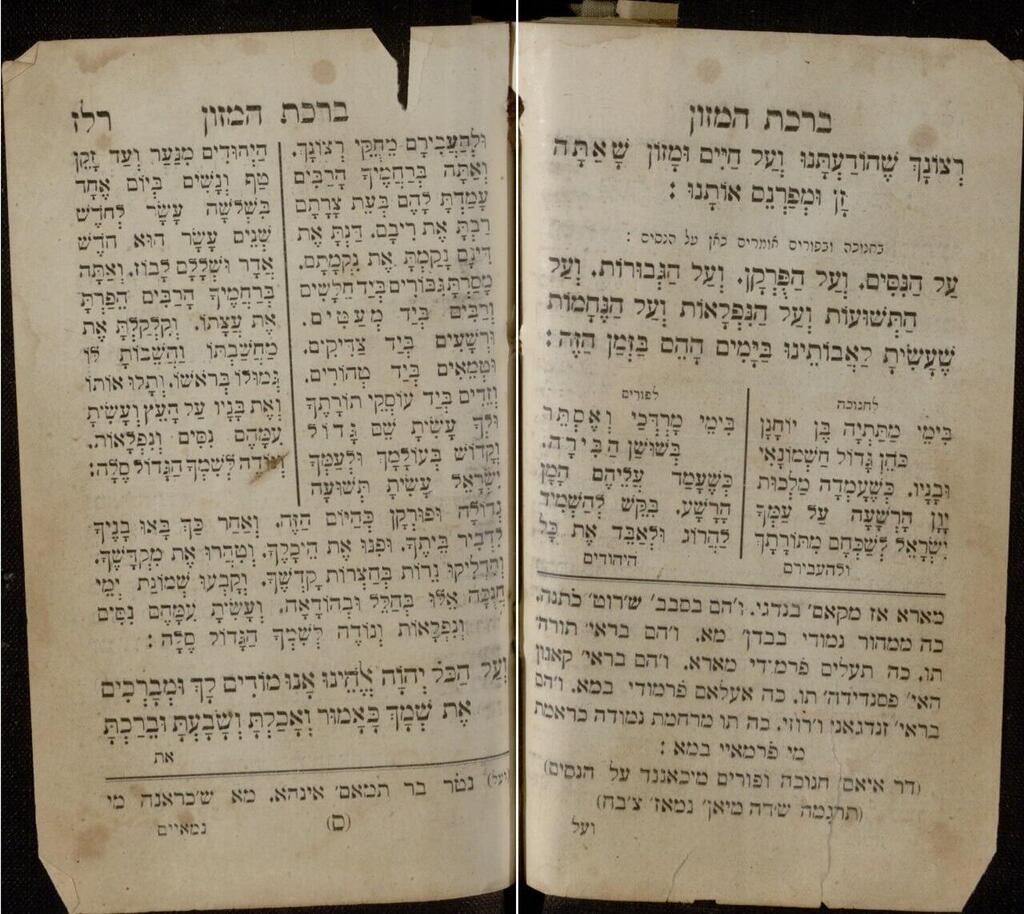 ברכת המזון
רְצוֹנָךְ שֶׁהוֹדַעְתָּנוּ וְעַל חַיִּים וּמָזוֹן שָׁאַתָּה
זָן וּמְפַרְנֵס אוֹתָנוּ :
בחנוכה ובפורים אומרים כאן על הנסים :
עַל הַנִּסִּים. וְעַל הַפֻּרְקָן. וְעַל הַגְּבוּרוֹת. וְעַל
הַתְּשׁוּעוֹת וְעַל הַנִּפְלָאוֹת וְעַל הַנֶּחָמוֹת
שֶׁעָשִׂיתָ לַאֲבוֹתֵינוּ בַּיָּמִים הָהֵם בַּזְּמַן הַזֶּה :
לחנוכה
בִּימֵי מַתִּתְיָה בֶּן יוֹחָנָן
כֹּהֵן גָּדוֹל חַשְׁמוֹנָאִי
וּבָנָיו. כְּשֶׁעָמְדָה מַלְכוּת
יָוָן הָרְשָׁעָה עַל עַמְּךָ
יִשְׂרָאֵל לְשַׁכְּחָם מִתּוֹרָתָךְ
ולהעבירם
לפורים
בִּימֵי מָרְדְּכַי וְאֶסְתֵּר
בְּשׁוּשַׁן הַבִּירָה.
כְּשֶׁעָמַד עֲלֵיהֶם הָמָן
הָרָשָׁע. בִּקֵּשׁ לְהַשְׁמִיד
לַהֲרוֹג וּלְאַבֵּד אֶת כָּל
היהודים
מארא אז מקאם׳ בנדגי. ז׳הם בסבב׳ ש׳רוט׳ כתנה.
כה ממהור נמודי בבדן׳ מא. ו׳הם בראי׳ תורה׳
תו. כה תעלים פרמ׳די מארא. ו׳הם בראי׳ קאנון
האי׳ פסנדידה׳ תו. כה אעלאם פרמודי במא. ו׳הם
בראי׳ זנדגאני ו׳רוזי. כה תו מרחמת נמודה כראמת
מי פרמאיי במא :
(דר איאם׳ חנוכה ופורים מיכאננד על הנסים)
(תרגמה ש׳דה מיאן׳ נמאז׳ צ׳בח)
ועל
ברכת המזון רלז
וּלְהַעֲבִירָם מֵחֻקֵּי רְצוֹנָךְ.
וְאַתָּה בְּרַחֲמֶיךָ הָרַבִּים
עָמַדְתָּ לָהֶם בְּעֵת צָרָתָם
רַבְתָּ אֶת רִיבָם. דַּנְתָּ אֶת
דִּינָם נָקַמְתָּ אֶת נִקְמָתָם.
מָסַרְתָּ גִּבּוֹרִים בְּיַד חַלָּשִׁים
וְרַבִּים בְּיַד מְעַטִּים.
וּרְשָׁעִים בְּיַד צַדִּיקִים.
וּטְמֵאִים בְּיַד טְהוֹרִים.
וְזֵדִים בְּיַד עוֹסְקֵי תוֹרָתֶךָ
וּלְךָ עָשִׂיתָ שֵׁם גָּדוֹל
וְקָדוֹשׁ בְּעוֹלָמָךְ וּלְעַמְּךָ
יִשְׂרָאֵל עָשִׂיתָ תְּשׁוּעָה
גְדוֹלָה וּפוּרְקָן כְּהַיּוֹם הַזֶּה. וְאַחַר כָּךְ בָּאוּ בָנֶיךָ
לִדְבִיר בֵּיתֶךָ. וּפִנּוּ אֶת הֵיכָלֶךָ. וְטִהֲרוּ אֶת מִקְדָּשֶׁךָ.
וְהִדְלִיקוּ נֵרוֹת בְּחַצְרוֹת קָדְשֶׁךָ. וְקָבְעוּ שְׁמוֹנַת יְמֵי
חֲנֻכָּה אֵלּוּ בְּהַלֵּל וּבְהוֹדָאָה. וְעָשִׂיתָ עִמָּהֶם נִסִּים
וְנִפְלָאוֹת וְנוֹדֶה לְשִׁמְךָ הַגָּדוֹל סֶלָה :
הַיְּהוּדִים מִנַּעַר וְעַד זָקֵן
טַף וְנָשִׁים בְּיוֹם אֶחָד
בִּשְׁלֹשָׁה עָשָׂר לְחֹדֶשׁ
שְׁנֵים עָשָׂר הוּא חֹדֶשׁ
אֲדָר וּשְׁלָלָם לָבוֹז. וְאַתָּה
בְּרַחֲמֶיךָ הָרַבִּים הֵפַרְתָּ
אֶת עֲצָתוֹ. וְקִלְקַלְתָּ אֶת
מַחֲשַׁבְתּוֹ וַהֲשֵׁבוֹתָ לּוֹ
גְּמוּלוֹ בְּרֹאשׁוֹ. וְתָלוּ אוֹתוֹ
וְאֶת בָּנָיו עַל הָעֵץ וְעָשִׂיתָ
עִמָּהֶם נִסִּים וְנִפְלָאוֹת.
וְנוֹדֶה לְשִׁמְךָ הַגָּדוֹל סֶלָה :
וְעַל הַכֹּל יְהוָֹה אֱלֹהֵינוּ אָנוּ מוֹדִים לָךְ וּמְבָרְכִים
אֶת שְׁמָךְ כָּאָמוּר וְאָכַלְתָּ וְשָׂבָעְתָּ וּבֵרַכְתָּ
את
(ועל) נט׳ר בר תמאם׳ אינהא. מא ש׳כראנה מי
(ם)
נמאיים